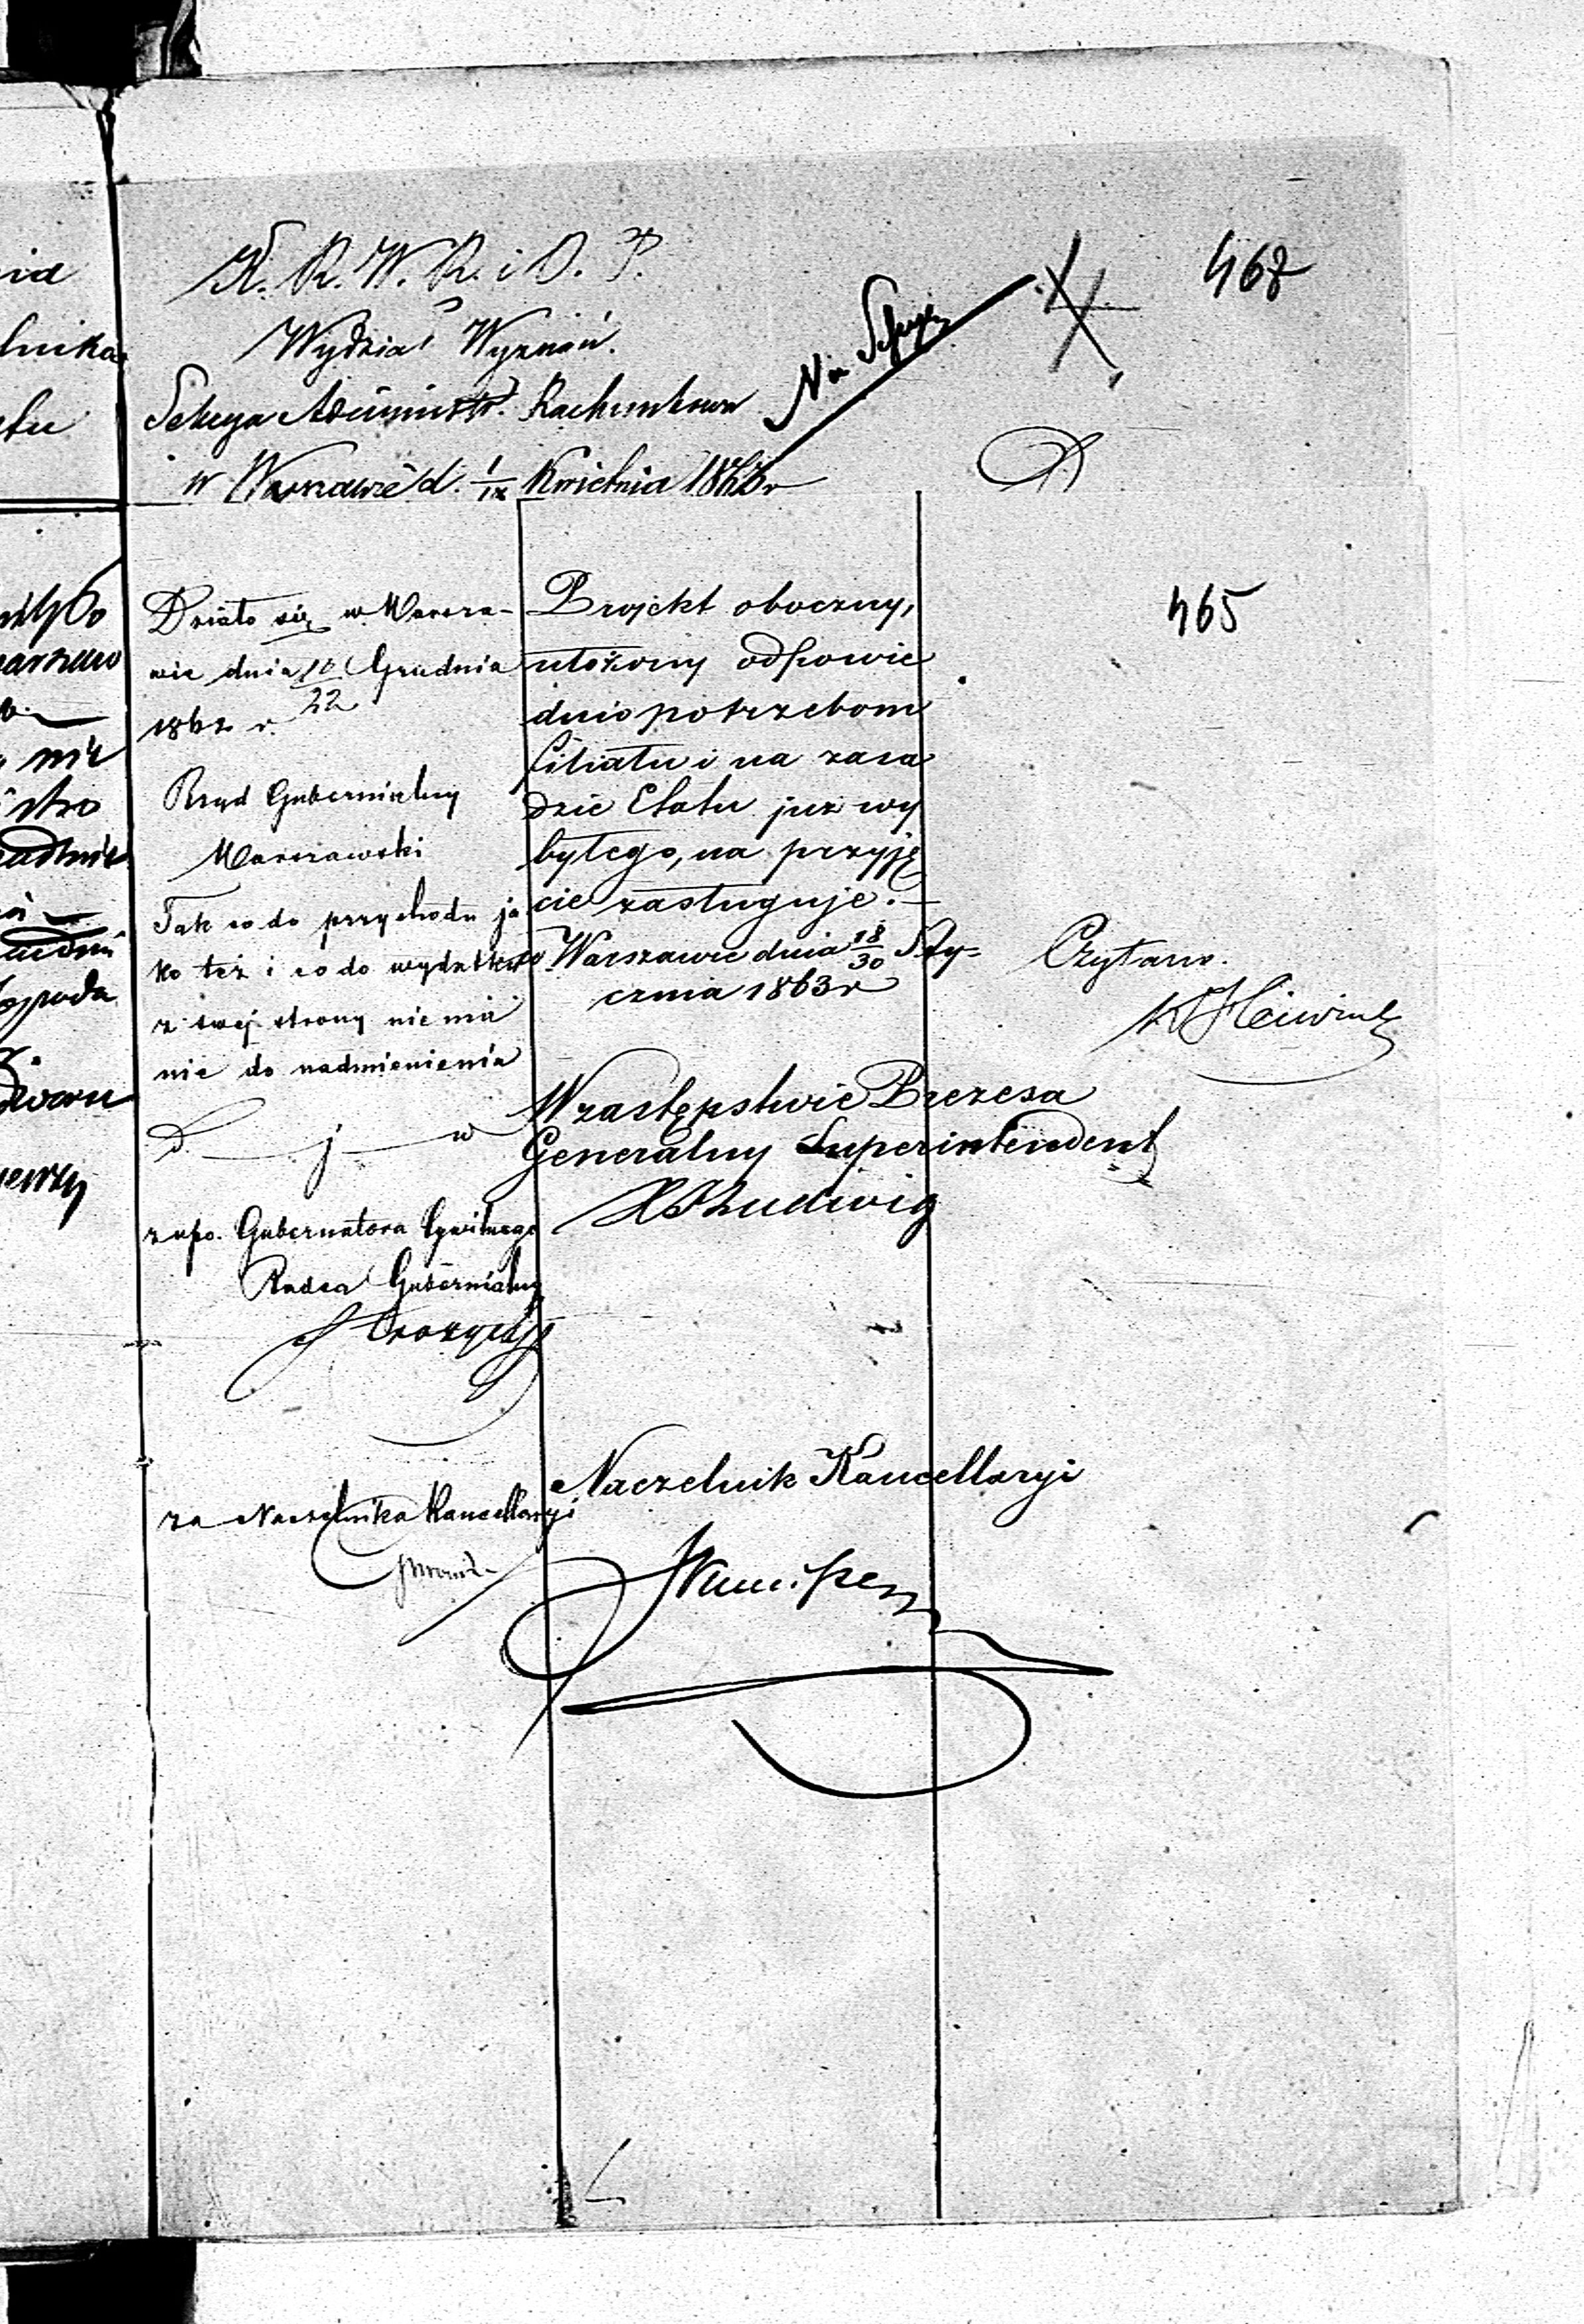 K. R. W. R. i O. P.
Wydział Wyznań.
Sekcya Administr. Rachunkowa
w Warszawie d. 1/ Kwietnia 186 r
Na
468
465
Działo się w Warsza-
wie dnia 10/22 Grudnia
1862 r.
Rząd Gubernialny
Warszawski
Tak co do przychodu ja
ko też i co do wydatków
z swej strony nie ma
nic do nadmienienia
D. j w
z upo. Gubernatora Cywilnego
Radca Gubernialny
za Naczelnika Kancellaryi
Projekt oboczny,
ułożony odpowie
dnio potrzebom
filiału i na zasa
dzie Etatu już wy
byłego, na przyję
cie zasługuje.
Warszawie dnia 18/30 Sty-
cznia 1863 r
W zastępstwie Prezesa
Generalny Superintendent
Ludwig
Naczelnik Kancellaryi
Czytano.
ia
lnika
nie